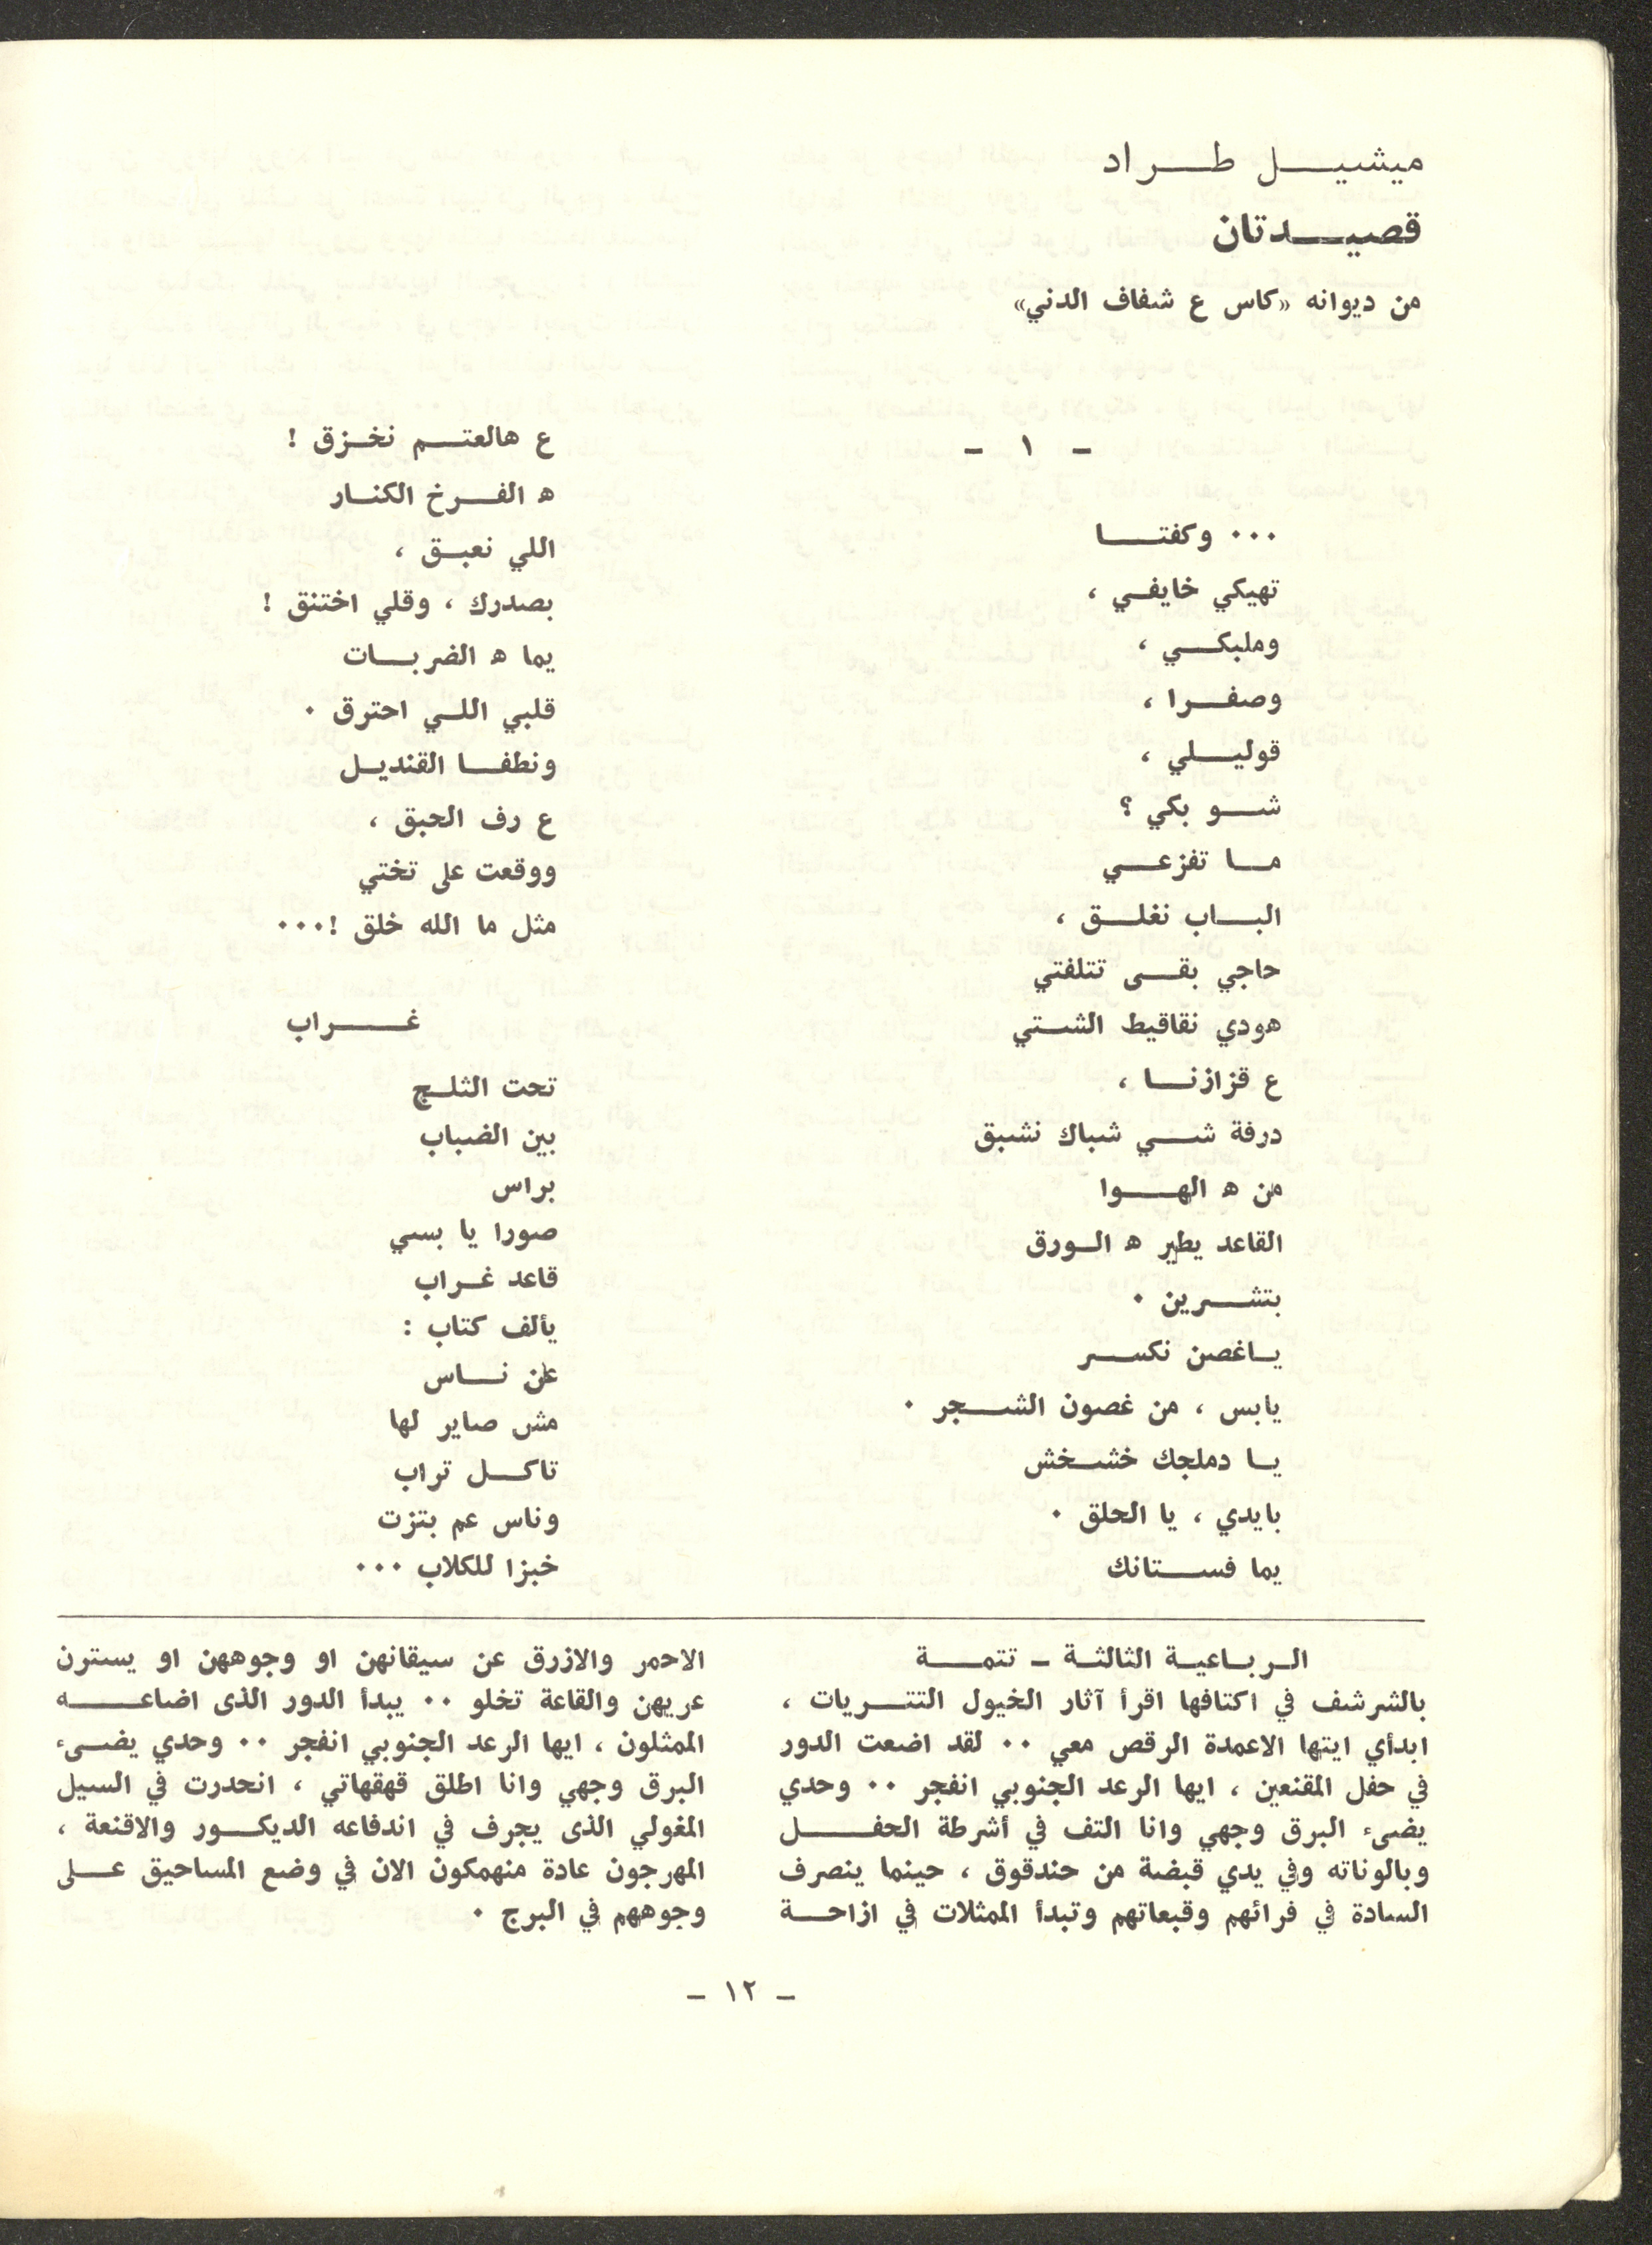 ميشيل طراد
قصيدتان
من ديوانه «كاس ع شفاف الدني»
- ١ -
٠٠٠ وكفتا
تهيكي خايفي ،
وملبكي ،
وصفرا ،
قوليلي ،
شو بكي ؟
ما تفزعي
الباب نغلق ،
حاجي بقى تتلفتي
هودي نقاقيط الشتي
ع قزازنا ،
درفة شي شباك نشبق
من ه الهوا
القاعد يطير ه الورق
بتشرين ٠
ياغصن نكسر
يابس ، من غصون الشجر ٠
يا دملجك خشخش
بايدي ، يا الحلق ٠
يما فستانك
ع هالعتم نخزق !
ه الفرخ الكنار
اللي نعبق ،
بصدرك ، وقلي اختنق !
يما ه الضربات
قلبي اللي احترق ٠
ونطفا القنديل
ع رف الحبق ،
ووقعت على تختي
مثل ما الله خلق !٠٠٠
غراب
تحت الثلج
بين الضباب
براس
صورا يا بسي
قاعد غراب
يألف كتاب :
عن ناس
مش صاير لها
تاكل تراب
وناس عم بتزت
خبزا للكلاب ٠٠٠
الرباعية الثالثة - تتمة
بالشرشف في اكتافها اقرأ آثار الخيول التتريات ،
ابدأي ايتها الاعمدة الرقص معي ٠٠ لقد اضعت الدور
في حفل المقنعين ، ايها الرعد الجنوبي انفجر ٠٠ وحدي
يضىء البرق وجهي وانا التف في أشرطة الحفل
وبالوناته وفي يدي قبضة من حندقوق ، حينما ينصرف
السادة في فرائهم وقبعاتهم وتبدأ الممثلات في ازاحة
الاحمر والازرق عن سيقانهن او وجوههن او يسترن
عريهن والقاعة تخلو ٠٠ يبدأ الدور الذى اضاعه
الممثلون ، ايها الرعد الجنوبي انفجر ٠٠ وحدي يضىء
البرق وجهي وانا اطلق قهقهاتي ، انحدرت في السيل
المغولي الذى يجرف في اندفاعه الديكور والاقنعة ،
المهرجون عادة منهمكون الان في وضع المساحيق على
وجوههم في البرج ٠
- ١٢ -